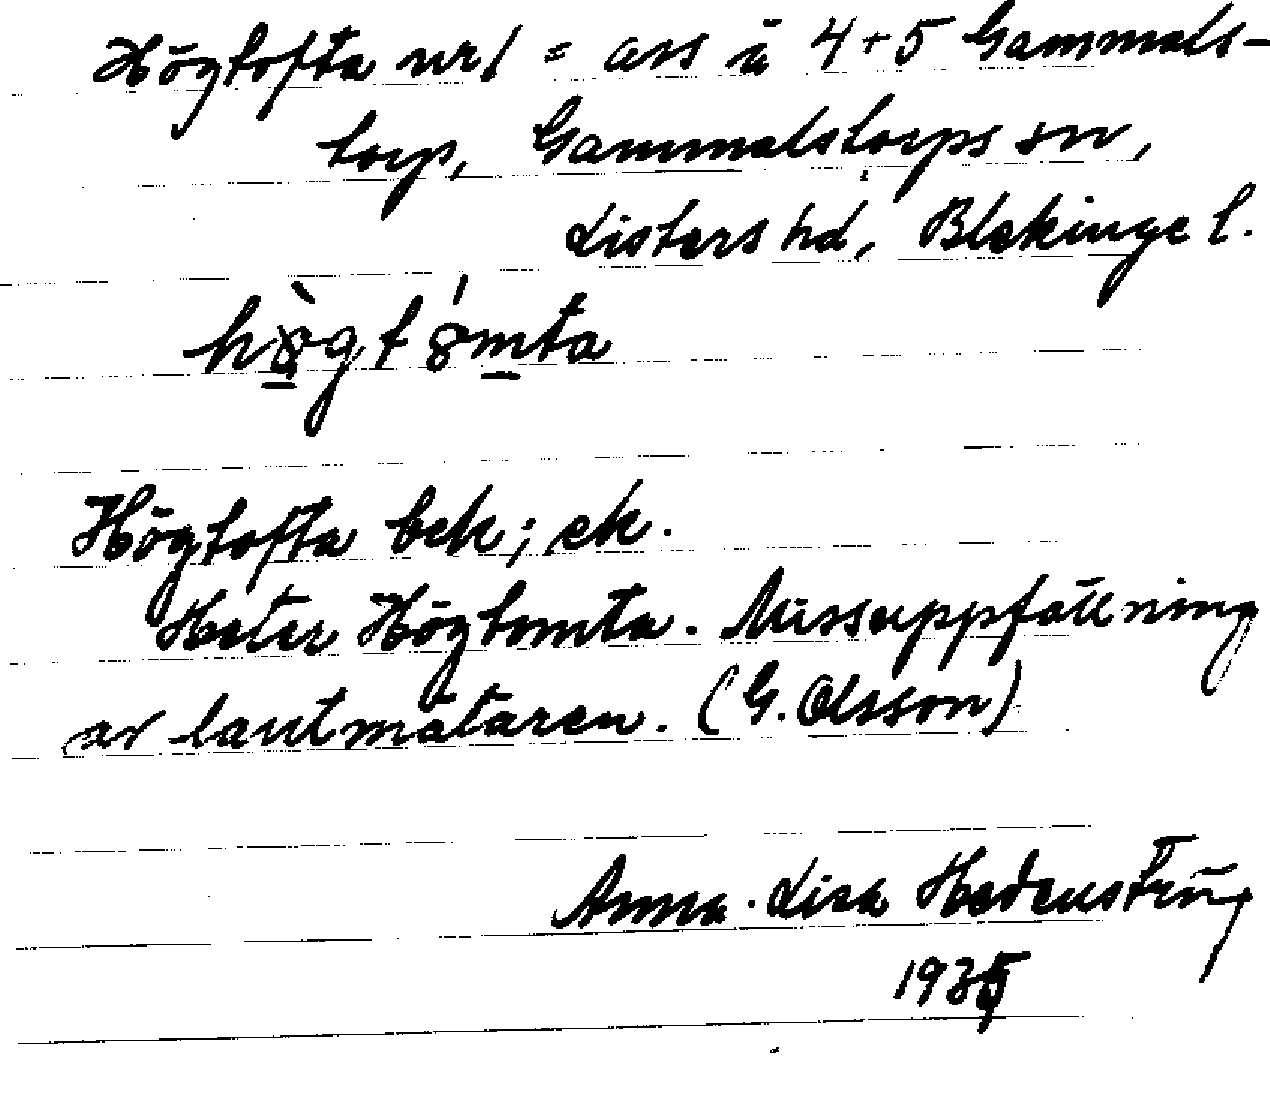 Högtofta nr 1 = avs å 4+5 Gammals-
torp, Gammalstorps sn,
Listers hd, Blekinge l.
Högtofta bek; ek.
Heter Högtomta. Missuppfattning
av lantmätaren. (G. Olsson)
Anna-Lisa Hedenström
1935